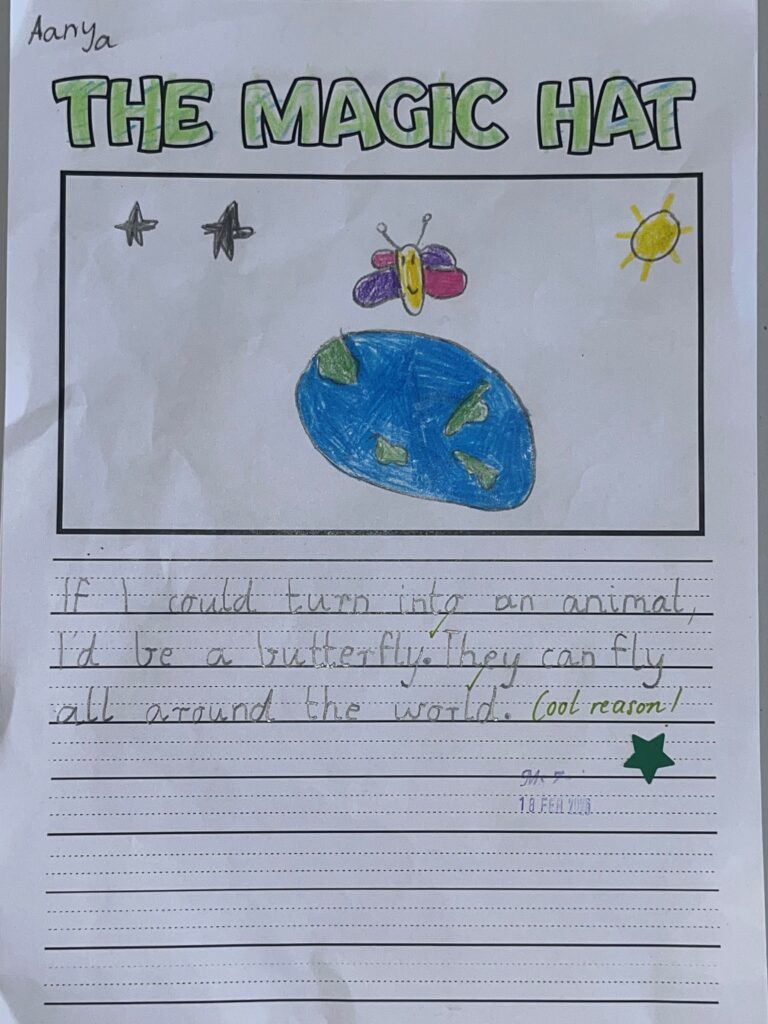 Aanya
THE MAGIC HAT
If I could turn into an animal,
I'd be a butterfly. They can fly
all around the world. Cool reason!
18 FEB